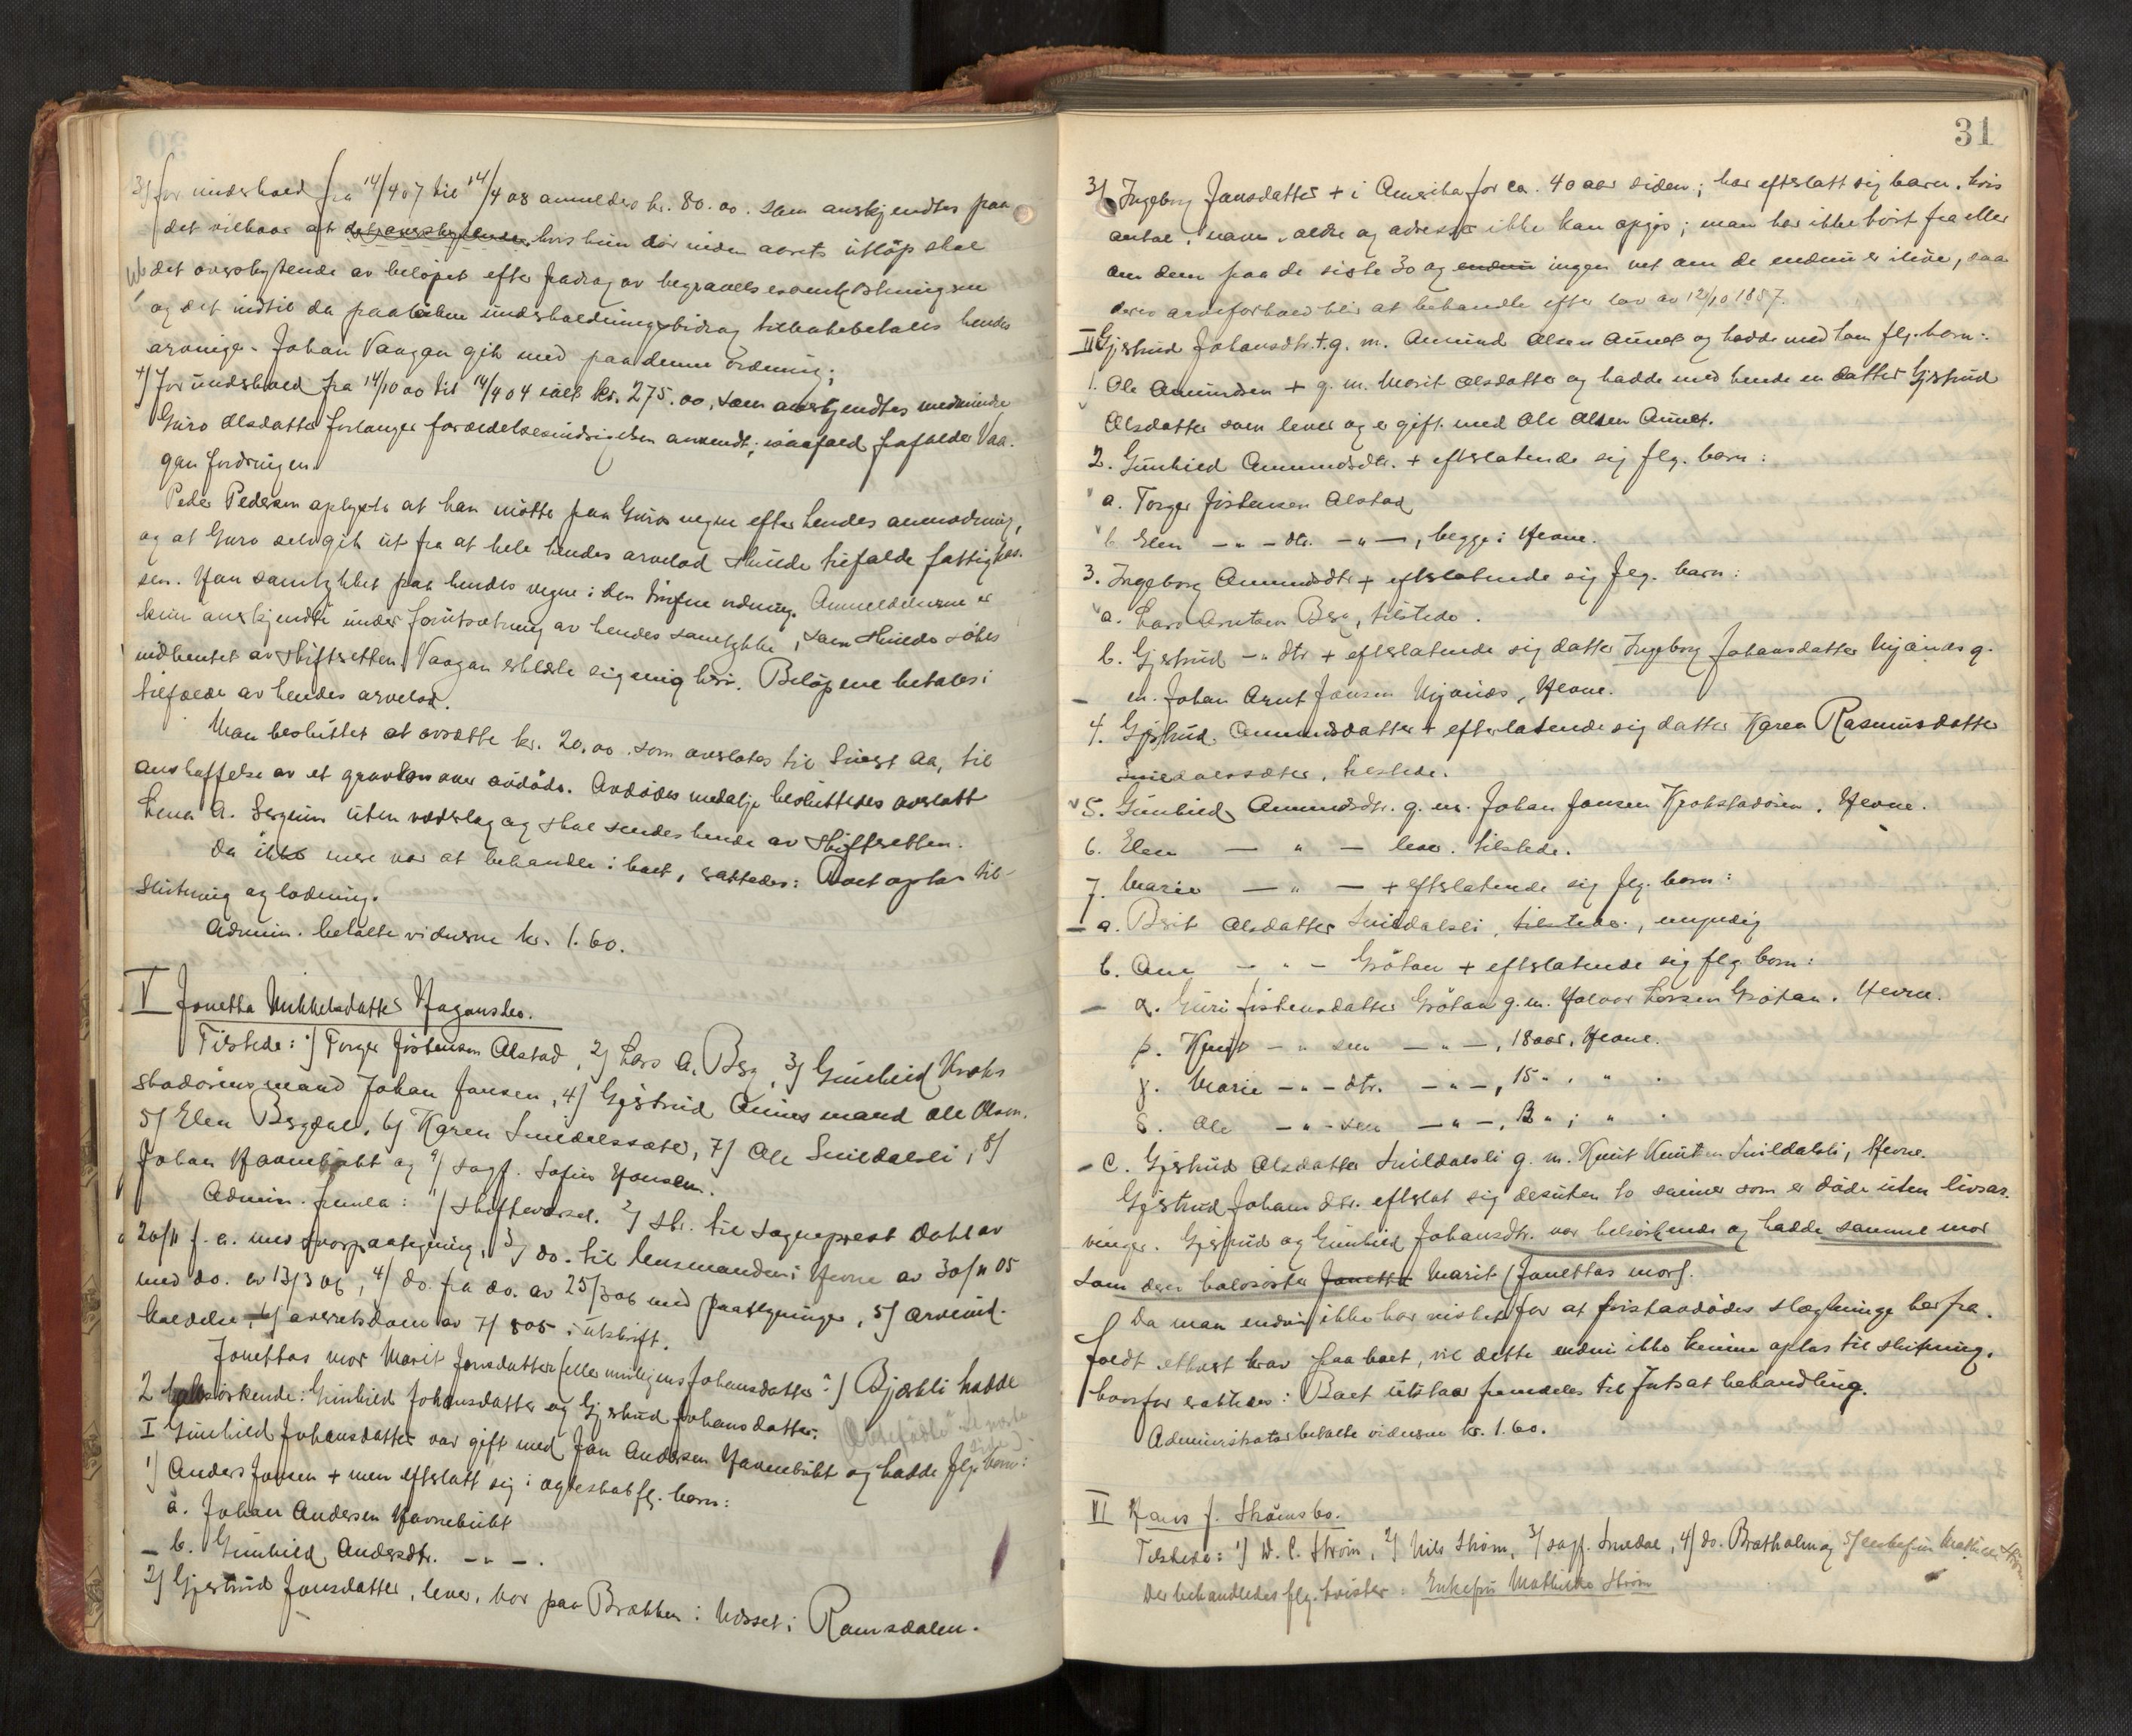 3) for underhold fra 14/4 07 til 14/4 08 anmeldes kr. 80.00. som anerkjendtes paa
det vilkaar at det overskytende, hvis hun dör inden aarets utlöp skal
det overskytende av belöpet efter fradrag av begravelsesomkostningerne
og det indtil da paalöbne underholdningsbidrag tilbakebetales hendes
arvinger. Johan Vaagan gik med paa denne ordning;
4) for underhold fra 14/10 00 til 14/4 04 ialt kr. 275.00, som anerkjendtes medmindre
Guro Olsdatter forlanger foreldelsesindsigelsen anvendt; isaafald frafalder Vaa-
gan fordringen.
Peder Pedersen oplyste at han mötte paa Guros vegne efter hendes anmodning,
og at Guro selv gik ut fra at hele hendes arvelod skulde tilfalde fattigkas-
sen. Han samtykket paa hendes vegne i den trufne ordning. Anmeldelserne er
kun anerkjendt under forutsætning av hendes samtykke, som skulde sökes
indhentet av skifteretten. Vaagan erklærte sig enig heri. Belöpene betales i
tilfælde av hendes arvelod.
Man besluttet at avsætte kr. 20.00 som overlates til Sivert Aa, til
anskaffelse av et gravkors over avdöde. Avdödes medalje besluttedes overlatt
Lena A. Bergum uten vederlag og skal sendes hende av skifteretten.
Da ikke mere var at behandle i boet, sattedes: Boet optas til
slutning og lodning.
Admin. betalte vidnerne kr. 1.60.
V Jonetta Mikkelsdatter Haganesbo.
Tilstede: 1) Torger Jöstensen Alstad, 2) Lars A. Berg, 3) Gunhild Krok-
stadörens mand Johan Jansen, 4) Gjertrud Aunes mand Ole Olsen.
5) Elen Bergdal, 6) Karen Snildalssæter, 7) Ole Snildalsli, 8)
Johan Havnebukt og 9) sagf. Sofus Hansen.
Admin. fremla: 1) skiftevarsel. 2) skr. til sogneprest Dahl av
20/11 f. a. med svarpaategning, 3) do. til lensmanden i Hevne av 30/11 05
med do. av 13/3 06, 4) do. fra do. av 25/3 06 med paategninger, 5) arveind-
kaldelse, 6) averetsdom av 7/8 05 i utskrift.
Jonettas mor Marit Jonsdatter (eller muligens Johansdatter?) Bjerkli hadde
2 halvsöskende: Gunhild Johansdatter og Gjertrud Johansdatter.
I Gunhild Johansdatter var gift med Jon Andersen Havnebukt og hadde flg. børn:
1) Anders Jonsen + men efterlatt sig i egteskab flg. børn:
a. Johan Andersen Havnebukt
b. Gunhild Andersdtr. - " - .
2) Gjertrud Jonsdatter, lever, bor paa Brekken i Nesset i Romsdalen.
31
3) Ingeborg Jonsdatter + i Amerika for ca. 40 aar siden; har efterlatt sig barn. hvis
antal, navn, alder og adresse ikke kan opgis; man har ikke hört fra eller
om dem paa de siste 30 og endnu ingen vet om de endnu er ilive, saa
deres arveforhold blir at behandle efter lov av 12/10 1857.
II Gjertrud Johansdtr. + g. m. Amund Olsen Aunet og hadde med ham flg. børn:
1. Ole Amundsen + g. m. Marit Olsdatter og hadde med hende en datter Gjertrud
Olsdatter som lever og er gift med Ole Olsen Aunet.
2. Gunhild Amundsdtr. + efterlatende sig flg. børn:
a. Torger Jöstensen Alstad
b. Elen - " - dtr. - " -, begge i Hevne.
3. Ingeborg Amundsdtr. + efterlatende sig flg. børn:
a. Lars Arntsen Berg, tilstede.
b. Gjertrud - " dtr + efterlatende sig datter Ingeborg Johansdatter Nygaas g.
m. Johan Arnt Jonsen Nygaas, Hevne.
4. Gjertrud Amundsdatter + efterlatende sig datter Karen Rasmusdatter
Snildalssæter, tilstede.
5. Gunhild Amundsdtr. g. m. Johan Jansen Krokstadören, Hevne.
6. Elen - " - lever. tilstede.
7. Marie - " - + efterlatende sig flg. børn:
a. Brit Olsdatter Snildalsli, tilstede, umyndig
b. Ane - " - Gröten + efterlatende sig flg børn:
α. Guri Jöstensdatter Grötan g. m. Halvor Larsen Grötan. Hevne.
β. Knut - " sen - " -, 18 aar, Hevne.
γ. Marie - " - dtr. - " -, 15 " , " .
δ. Ole - " - sen - " -, 13 " , " .
c. Gjertrud Olsdatter Snildalsli g. m. Knut Knutsen Snildalsli, Hevne.
Gjertrud Johansdtr. efterlot sig desuten to sönner som er döde uten livsar-
vinger. Gjertrud og Gunhild Johansdtr. var helsöskende og hadde samme mor
som deres halvsöster Jonetta Marit (Jonettas mor).
Da man endnu ikke har vished for at forstavdödes slegtninge har fra-
faldt ethvert krav paa boet, vil dette endnu ikke kunne optas til slutning.
hvorfor sattes: Boet utstaar fremdeles til fortsat behandling.
Administrator betalte vidnerne kr. 1.60.
VI Hans J. Strömsbo.
Tilstede: 1) W. C. Ström, 2) Nils Ström, 3) sagf. Snedal, 4) do. Bratholm og 5) enkefru Mathilde Ström
Der behandledes flg. tvister: Enkefru Mathilde Ström